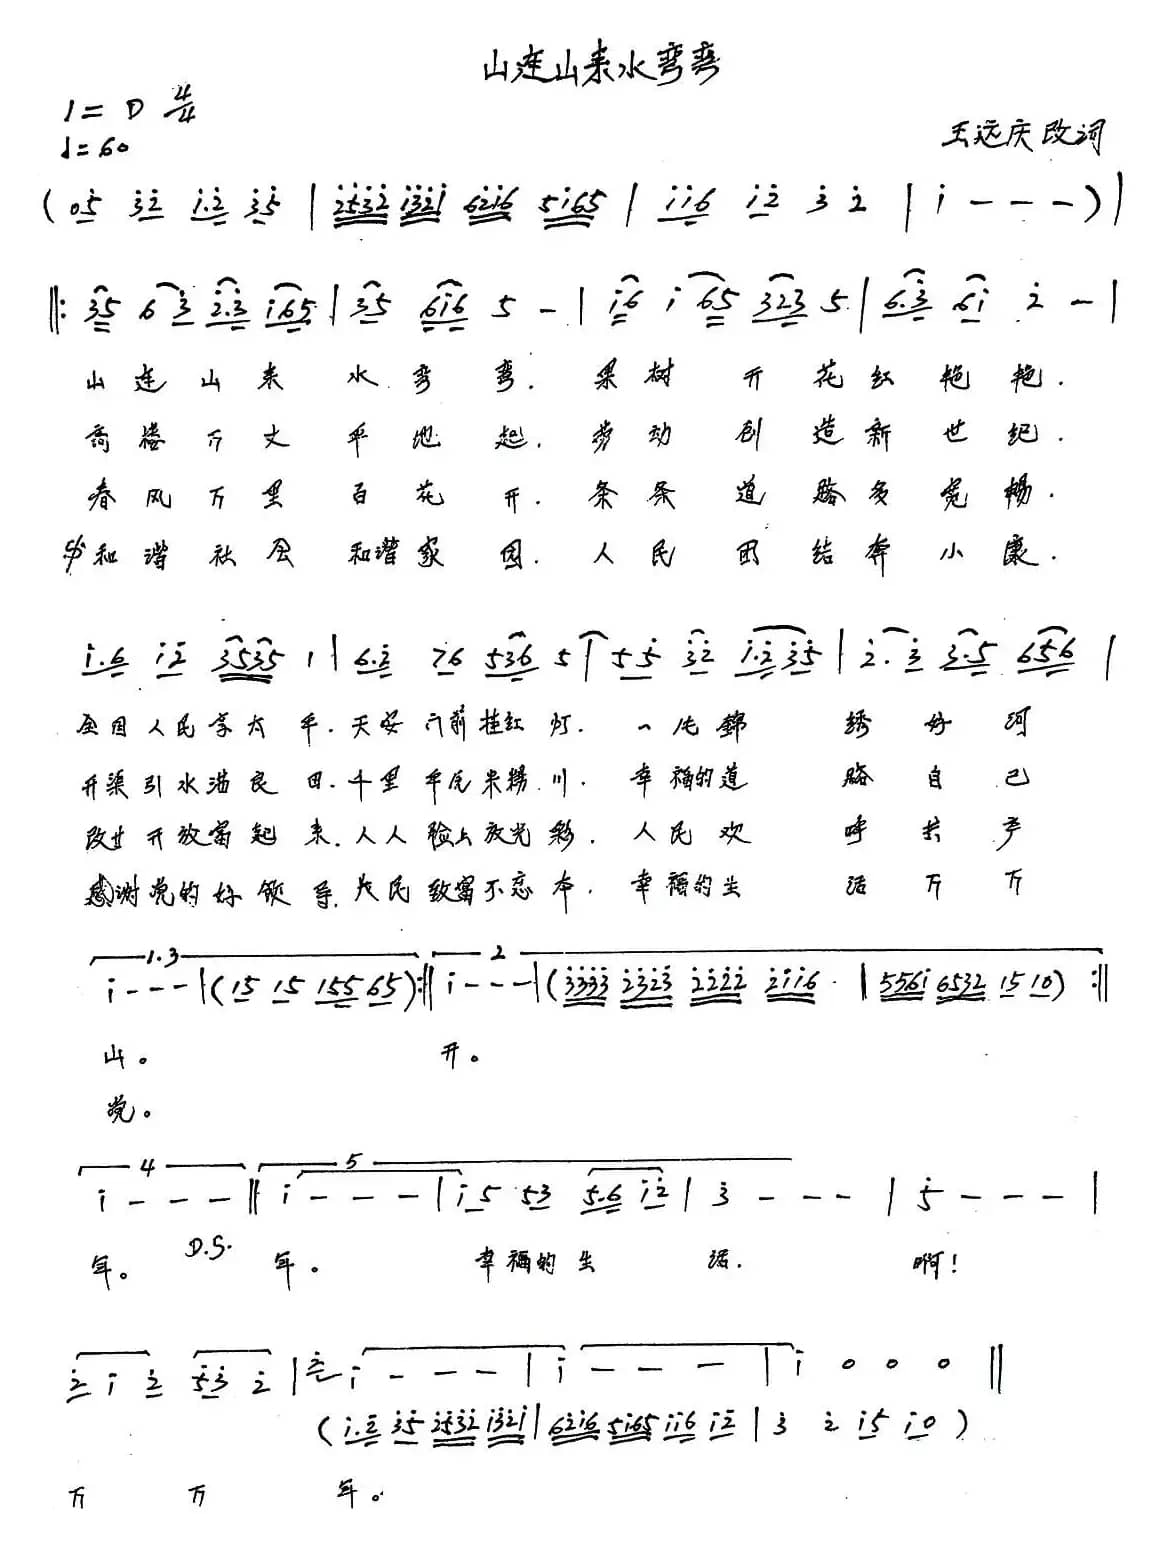 山连山来水弯弯
1=D 4/4
♩=60
王远庆改词
(05 32 1.2 35 | 2532 1321 6216 5165 | 116 12 3 2 | 1 - - - ) |
‖: 35 63 2.3 165 | 35 616 5 - | 16 1 65 323 5 | 6.3 61 2 - |
山连山来水弯弯.果树开花红艳艳.
高楼万丈平地起.劳动创造新世纪.
春风万里百花开.条条道路多宽畅.
和谐社会和谐家园.人民团结奔小康.
1.6 12 3535 1 | 6.2 76 536 5 | 55 32 1.2 35 | 2.3 3.5 656 |
全国人民享太平.天安门前挂红灯.一片锦绣好河
开渠引水浩良田.千里平瓦米粮川.幸福的道路自己
改廿开放富起来.人人脸上放光彩.人民欢呼共产
感谢党的好领导.人民致富不忘本.幸福的生活万万
1.3 2
1 - - - | (15 15 155 65) :‖ 1 - - - | (3333 2323 2222 2116 | 5561 6532 15 10) :‖
山。 开。
党。
4 5
1 - - - ‖ 1 - - - | 15 53 5.6 12 | 3 - - - | 5 - - - |
年。 D.S. 年。 幸福的生活. 啊！
2 1 2 53 2 | 2 1 - - - | 1 - - - | 1 0 0 0 ‖
(1.2 35 2532 1321 | 6216 5165 116 12 | 3 2 15 10)
万 万 年。